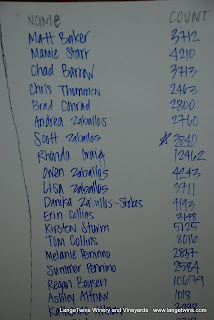 NAME COUNT
Matt Baker 3712
Mamie Starr 4210
Chad Barrow 3713
Chris Thummen 2463
Brad Conrad 2800
Andrea Zaballos 2760
Scott Zaballos * 3840
Rhonda Craig 12462
Owen Zaballos 4243
Lisa Zaballos 3711
Danika Zaballos-Stokes 4193
Erin Collins 3148
Kirsten Sturm 5125
Tom Collins 8016
Melanie Pennino 2837
Summer Pennino 2584
Regan Boysen 10679
Ashley 1018
LangeTwins Winery and Vineyards www.langetwins.com